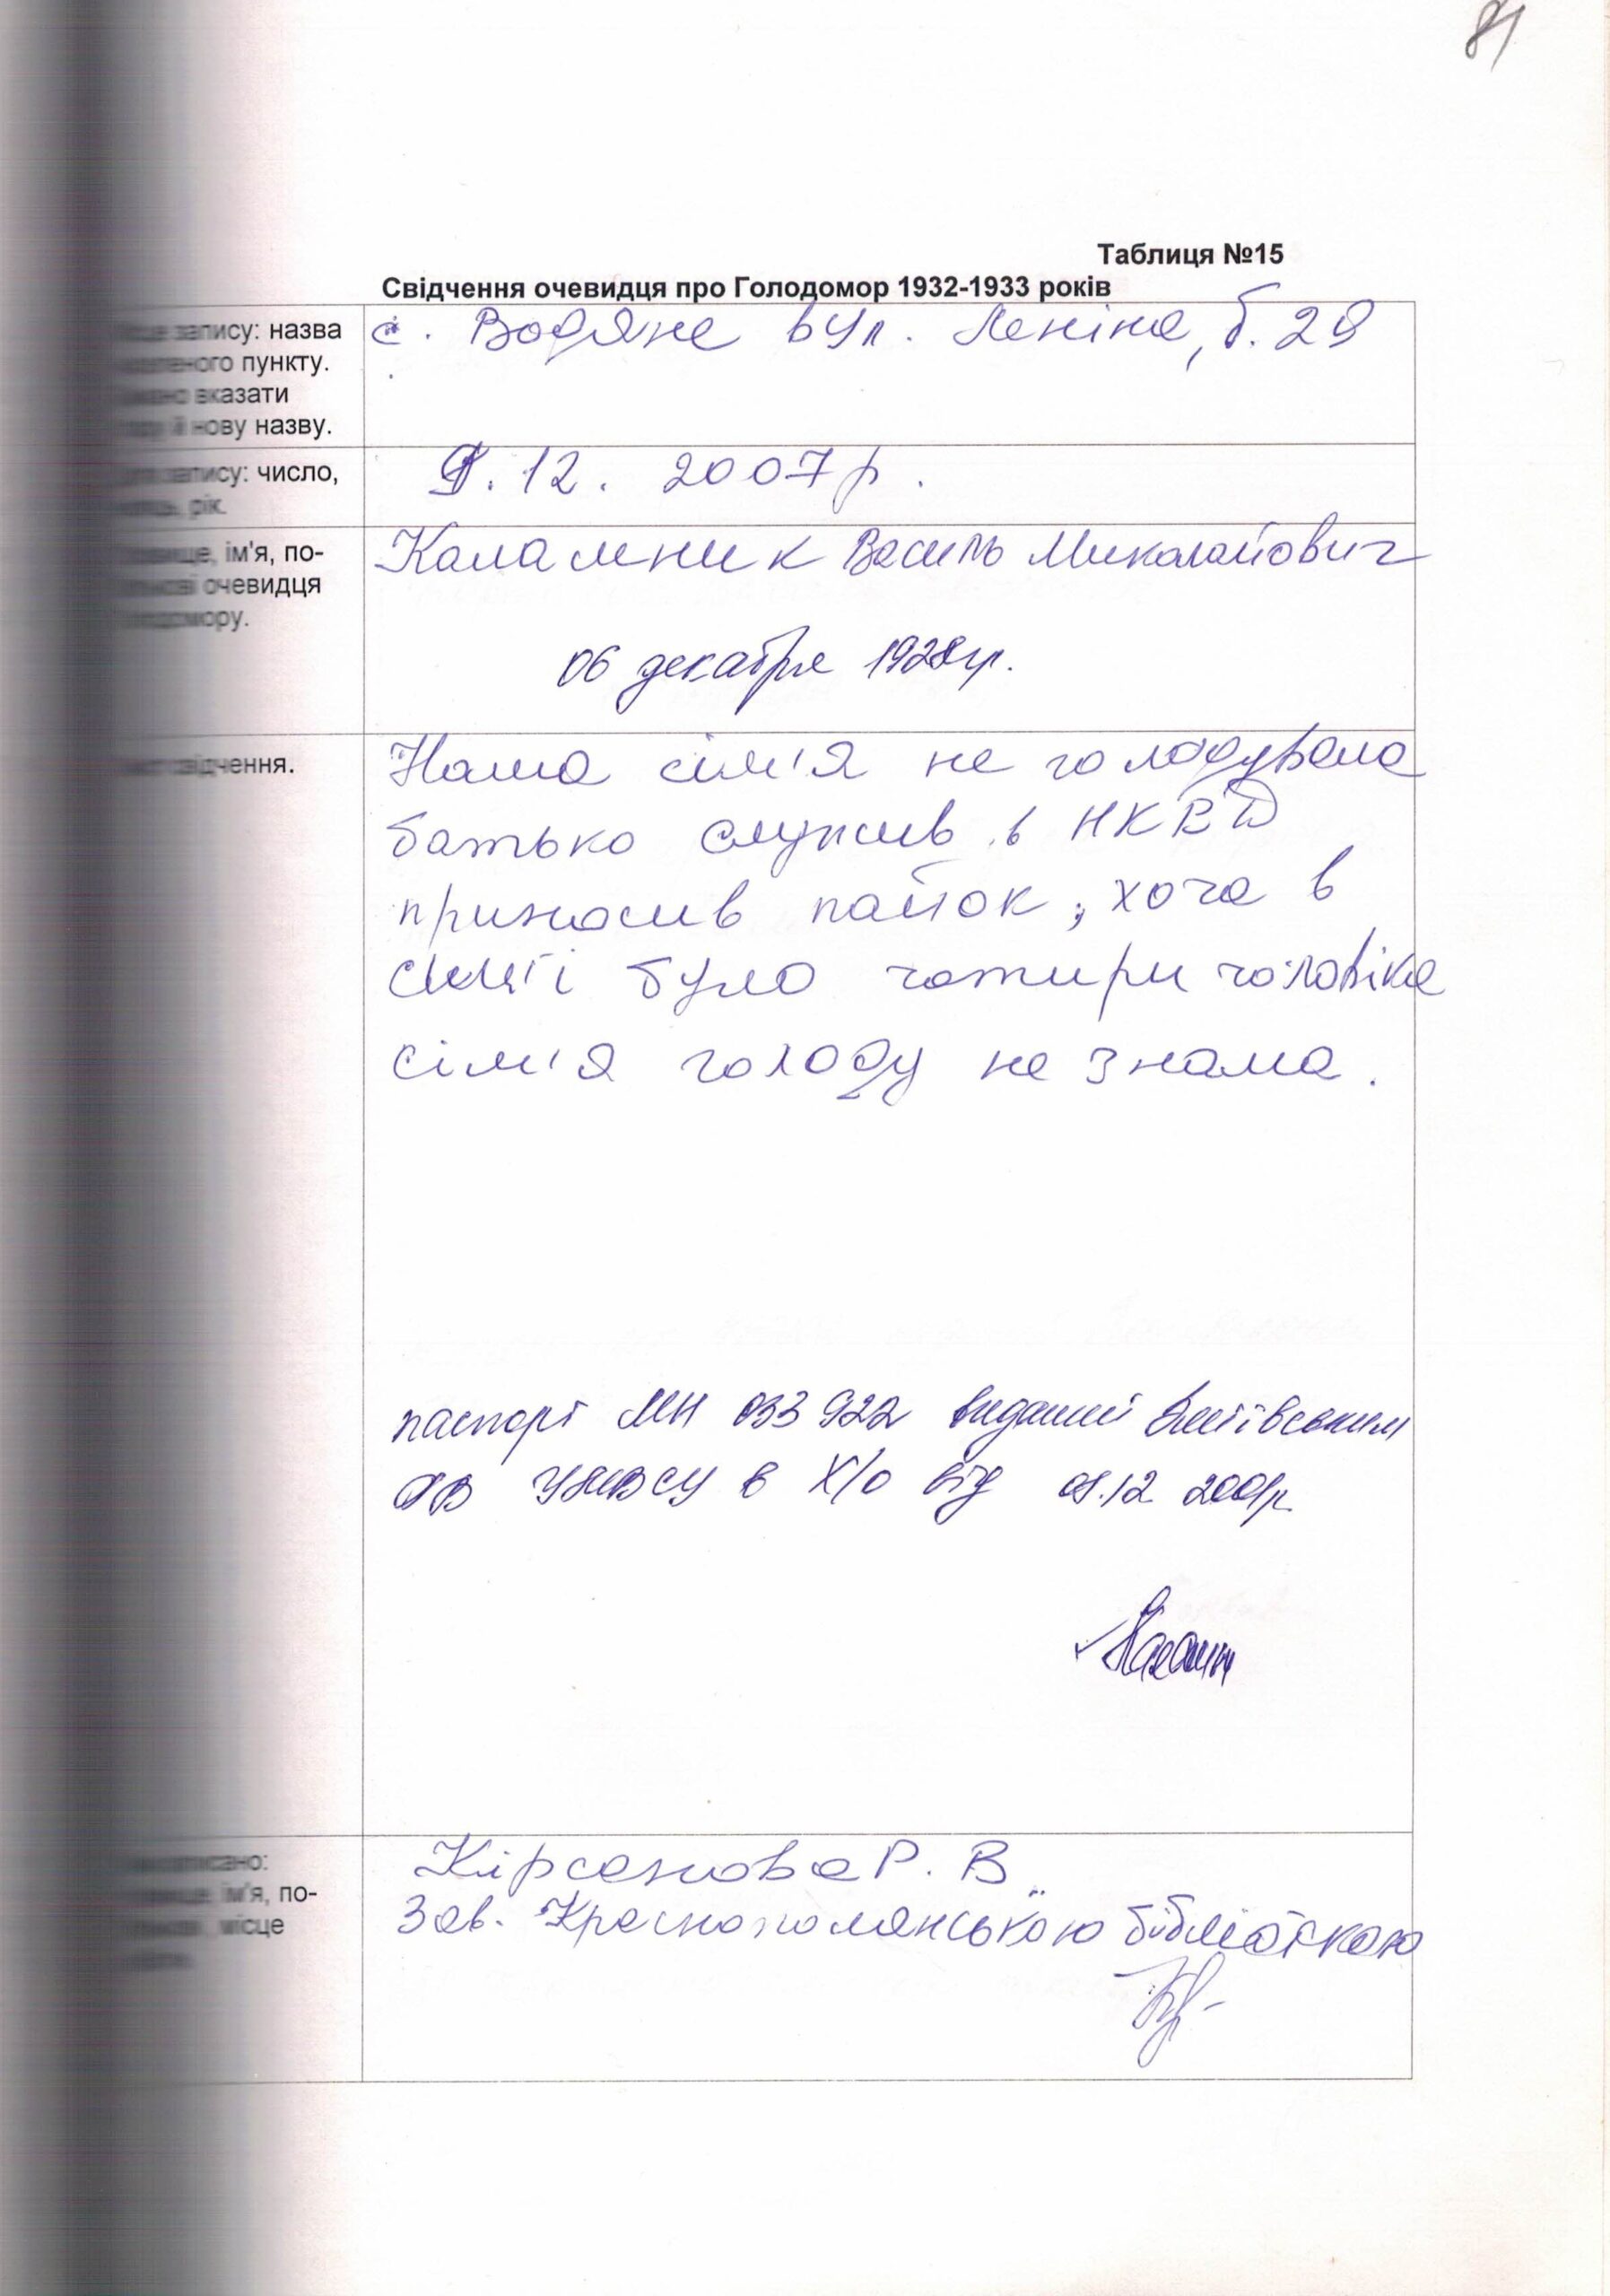 81
Таблиця №15
Свідчення очевидця про Голодомор 1932-1933 років
запису: назва
пункту.
вказати
й нову назву.
с. Водяне вул. Леніна, б. 29
запису: число,
рік.
9.12. 2007р.
ім'я, по-
очевидця
Каламник Василь Миколайович
06 декабря 1928 гр.
свідчення.
Наша сім'я не голодувала
батько служив в НКВД
приносив пайок, хоча в
сім'ї було чотири чоловіка
сім'я голоду не знала.
паспорт МН 033922 виданий Зміївським
РВ УМВСУ в Х/о від 12 2001р.
ім'я, по-
місце
Кірсанова Р. В.
Зав. Краснополянською бібліотекою